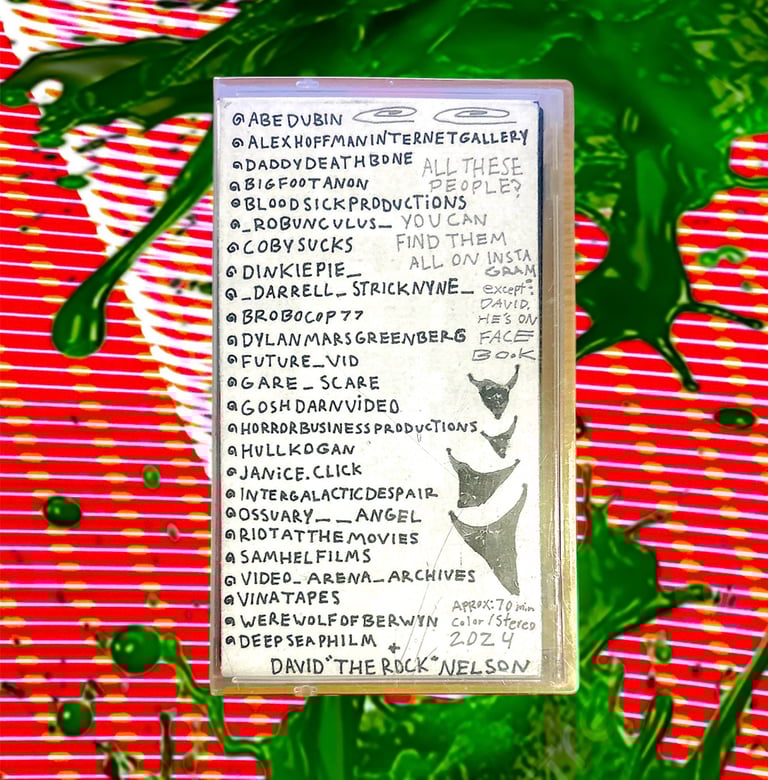 @ABEDUBIN
@ALEXHOFFMANINTERNETGALLERY
@DADDYDEATHBONE
@BIGFOOTANON
@BLOODSICKPRODUCTIONS
@_ROBUNCULUS_
@COBYSUCKS
@DINKIEPIE_
@_DARRELL_STRICKNYNE_
@BROBOCOP77
@DYLANMARSGREENBERG
@FUTURE_VID
@GARE_SCARE
@GOSHDARNViDEO
@HORRORBUSINESSPRODUCTIONS
@HULLKOGAN
@JANiCE.CLICK
@INTERGALACTICDESPAIR
@OSSUARY__ANGEL
@RIOTATTHEMOVIES
@SAMHELFILMS
@VIDEO_ARENA_ARCHIVES
@VINATAPES
@WEREWOLFOFBERWYN
@DEEPSEAPHILM
+
DAVID "THE ROCK" NELSON
ALL THESE
PEOPLE?
YOU CAN
FIND THEM
ALL ON INSTA
GRAM
except:
DAVID.
HE'S ON
FACE
BOOK
APROX: 70 min
Color/Stereo
2024